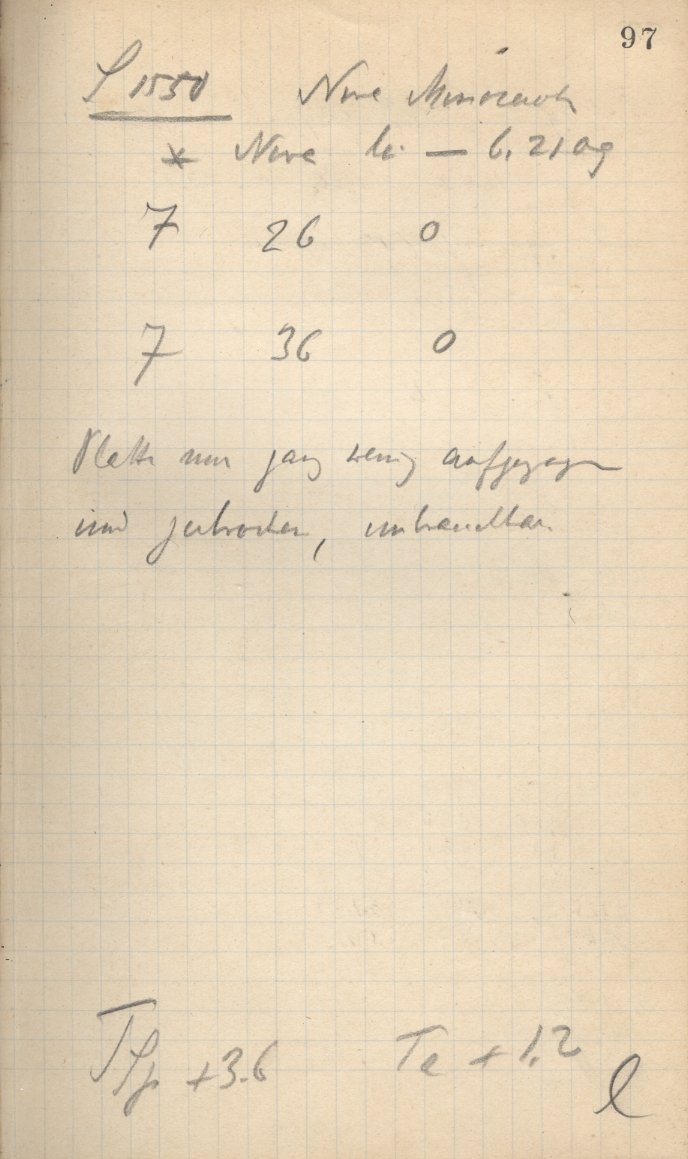 97
S 1550 Nova Monocerotis
* Nova — 6.21 ag
7 26 0
7 36 0
Platte nur ganz wenig aufgezogen
und zerbrochen, unbrauchbar.
TSp +3.6 Ta + 1.2
l